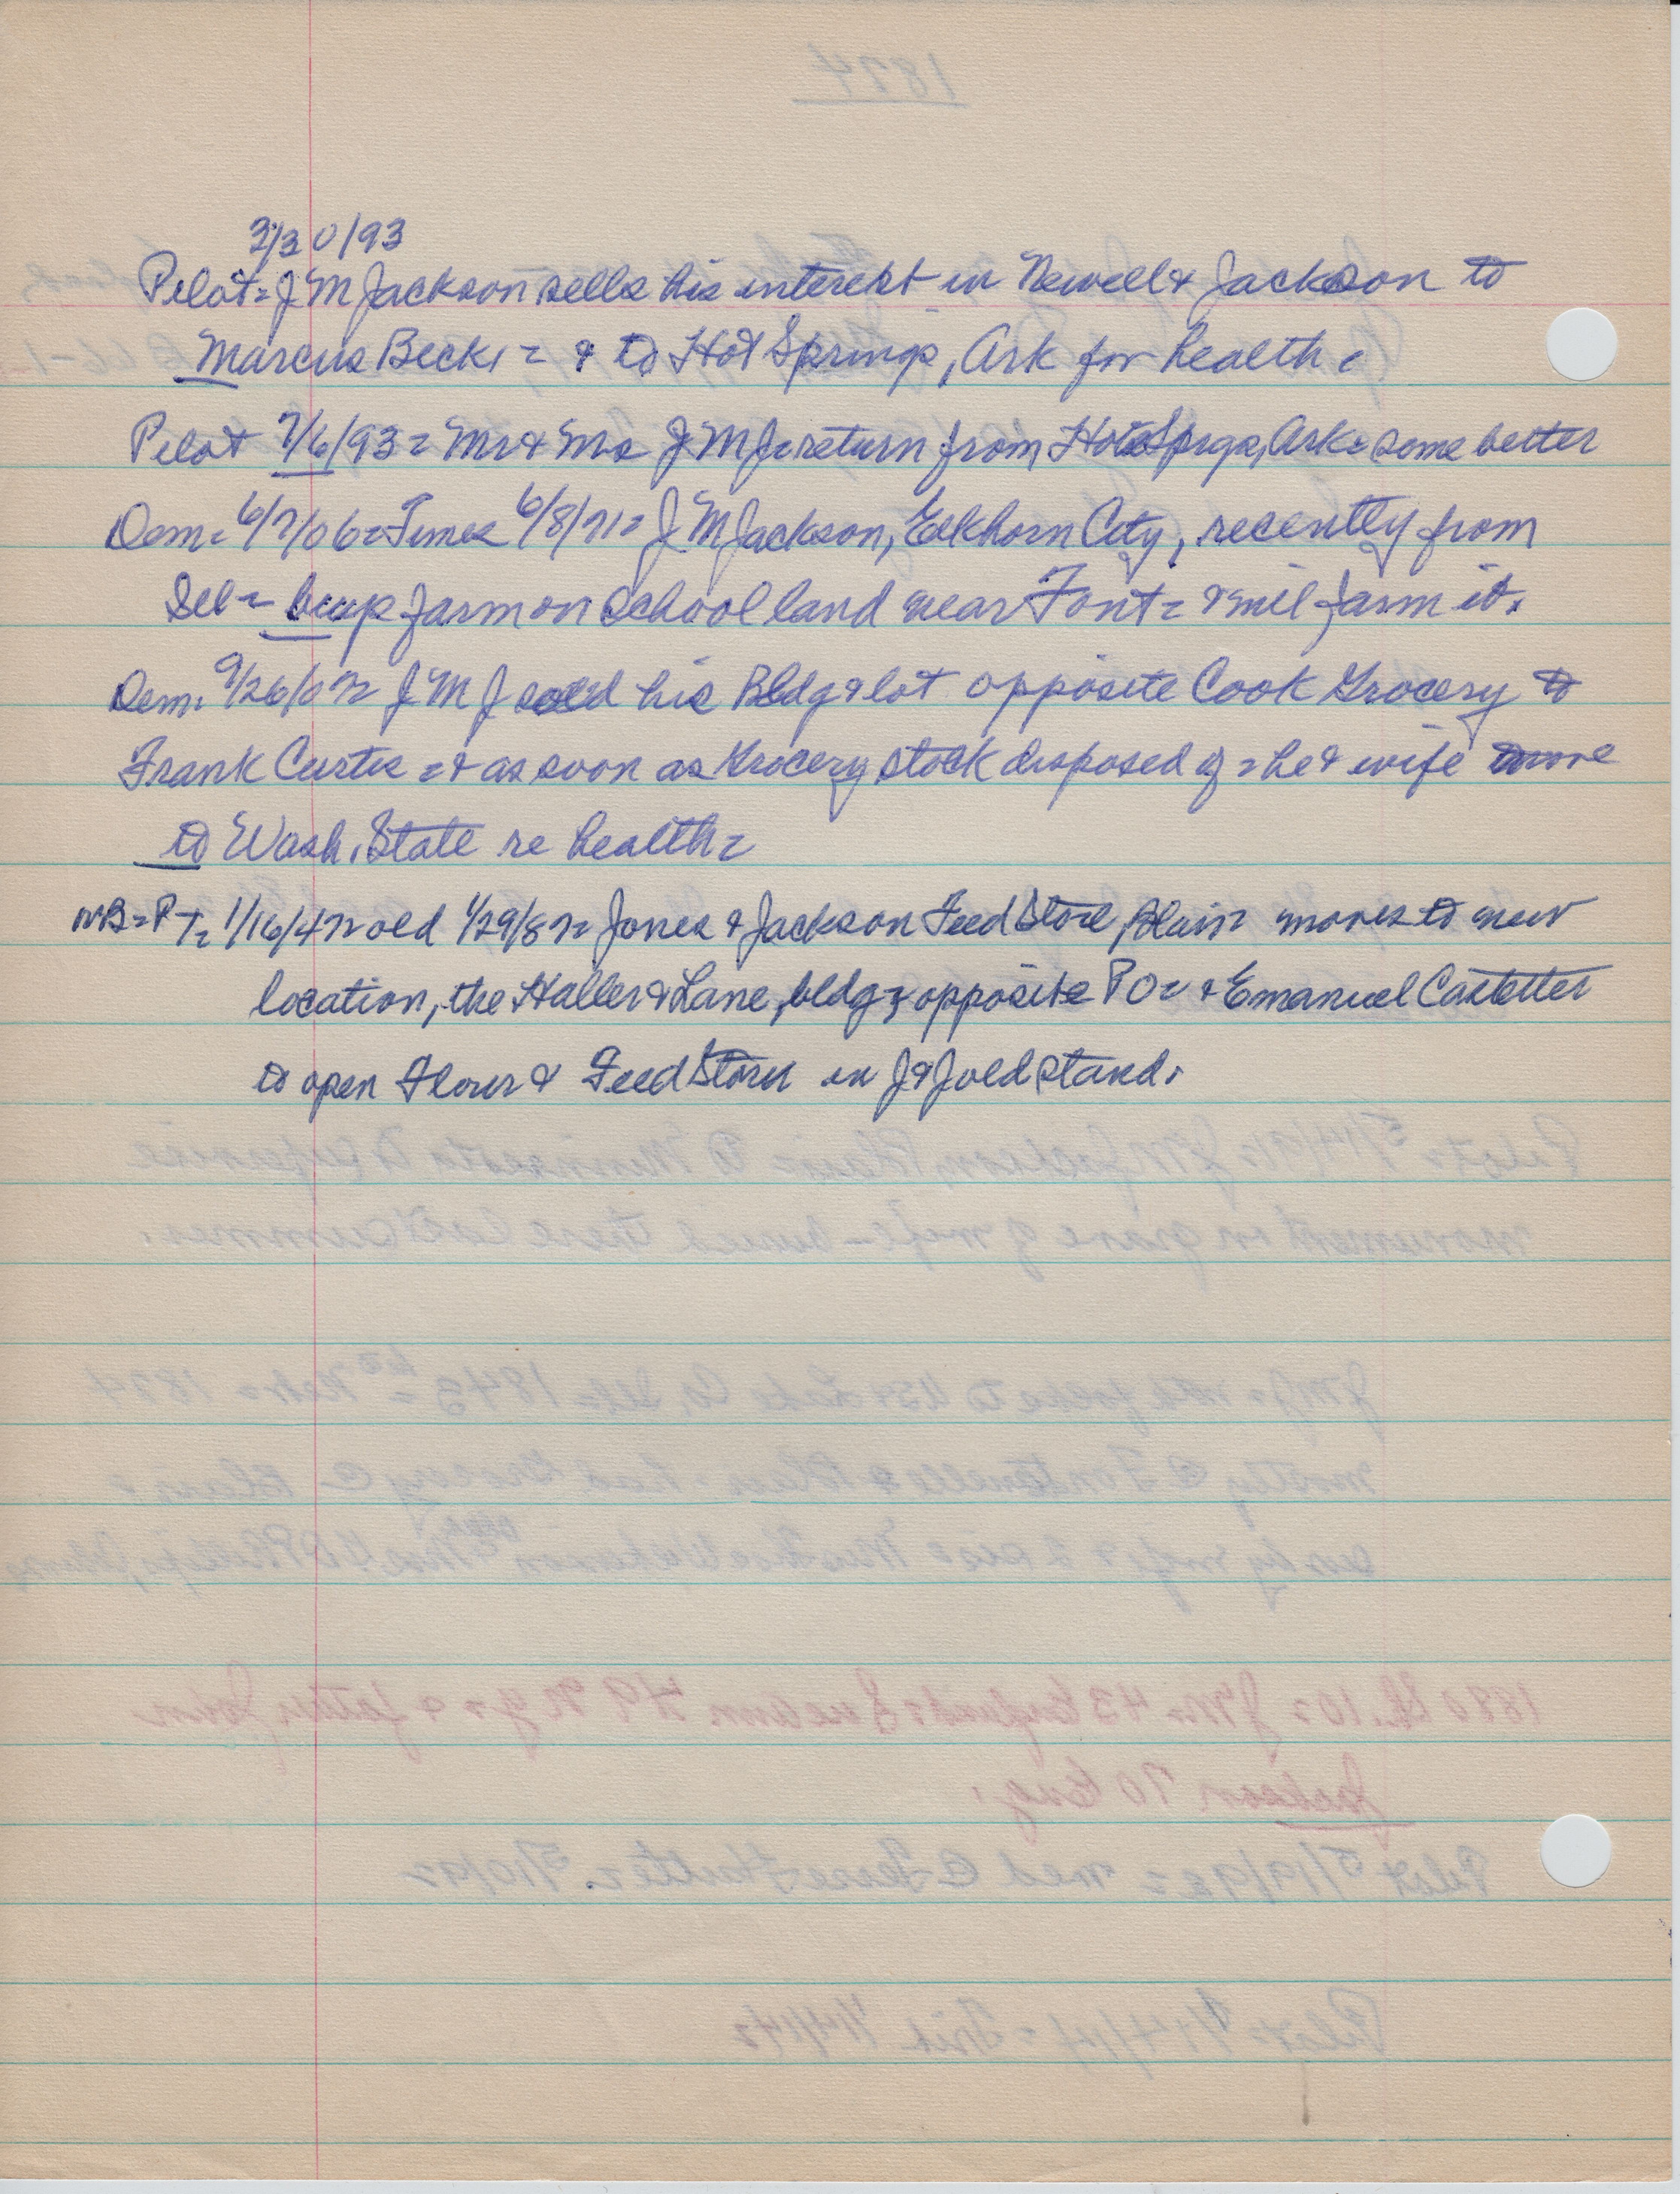 3/30/93
Pilot = J M Jackson sells his interest in Newell & Jackson to
Marcus Beck, = & to Hot Springs, Ark for health =
Pilot 7/6/93 = Mr & Mrs J M J = return from Hot Sprgs, Ark = some better
Dem = 6/7/06 = Times 6/8/71 = J M Jackson, Elkhorn City, recently from
Ill = buys farm on school land near Font = & will farm it.
Dem. 9/26/ J M J sold his Bldg & lot opposite Cook Grocery to
Frank Curtis = & as soon as Grocery stock disposed of = he & wife move
to Wash. State re health =
NB = PT = 1/16/47 = old 1/29/87 = Jones & Jackson Feed Store, Blair = moves to new
location, the Haller & Lane, bldg = opposite PO = & Emanuel Castetter
to open Flour & Feed Store in J & J old stand.